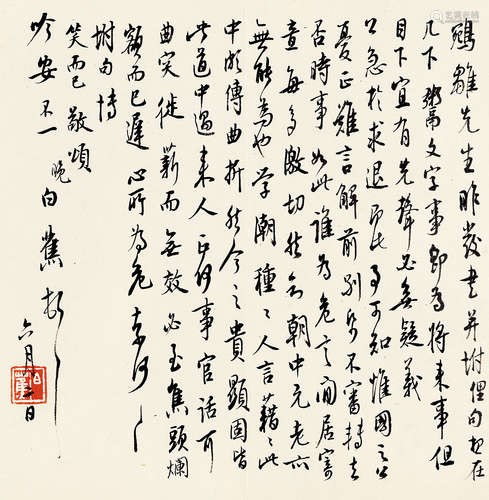 鵷雛先生昨發書并坿俚句想在
几下鬻文字事即為將來事但
目下宜有先聲必無疑義
公急於求退可知惟國之公
憂正難言解前別不審持去
否時事如此誰為危言閒居寄
意每多激切朝中元老亦
無能為也學潮種〻人言藉〻此
中能傳曲折然今之貴顯固皆
此道中過來人正何事官話所
曲突徙薪而無效必至焦頭爛
額而已遲心所為危奈何〻
坿句博
笑而已敬頌
吟安不一 晚白蕉頓
六月日